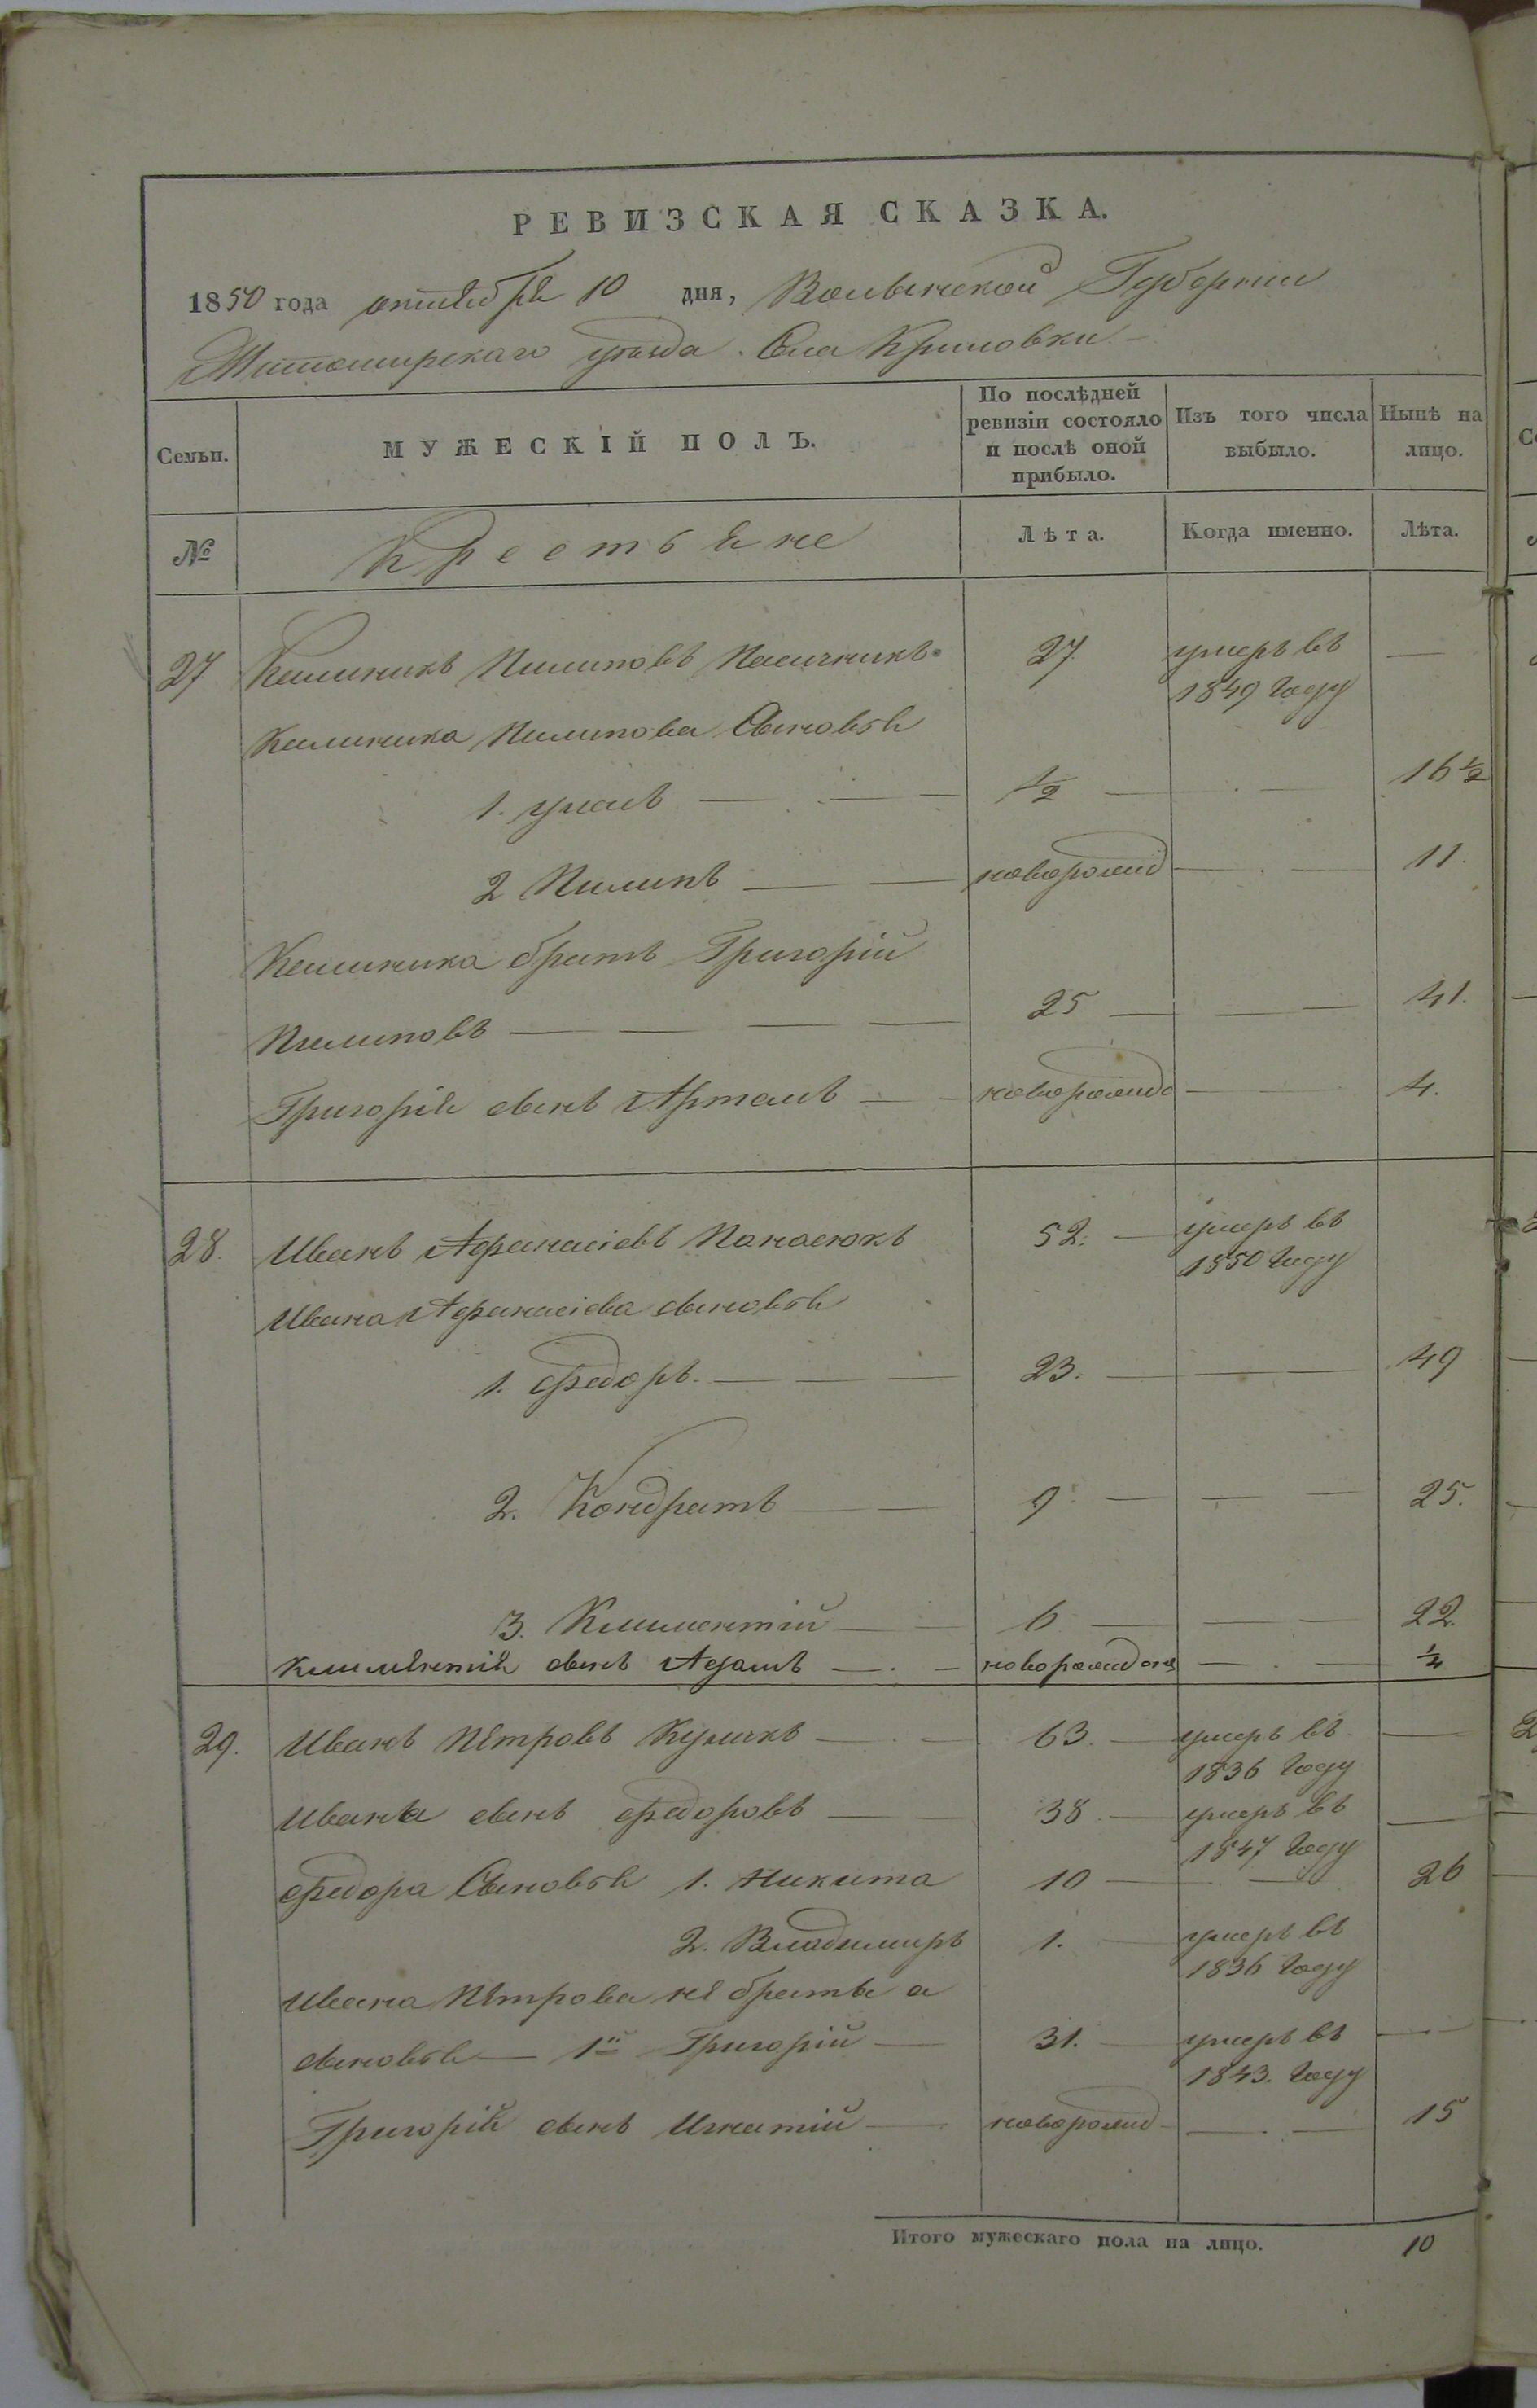 РЕВИЗСКАЯ СКАЗКА.
1850 года октября 10 дня, Волынской Губернии
Житомирскаго уѣзда. Села Криловки
Семьи. МУЖЕСКІЙ ПОЛЪ. По послѣдней ревизіи состояло и послѣ оной прибыло. Изъ того числа выбыло. Нынѣ на лицо.
№ Крестьяне Лѣта. Когда именно. Лѣта.
27 Калиникъ Пилиповъ Пасичникъ 27 умеръ въ 1849 Году —
Калиника Пилипова Сыновья
1. — ½ — 16½
2 Пилипъ — новорожд — 11.
Калиника братъ Григорій
Пилиповъ — 25 — 41.
Григорія сынъ Артемъ — новорожд — 4.
28. Иванъ Афанасіевъ Панасюкъ 52. — умеръ въ 1850 Году
Ивана Афанасіева сыновья
1. Федоръ. — 23. — 49
2. Кондратъ — 9 — 25.
3. Климентій — 6 — 22.
Климянтія сынъ Адамъ — новорожд — ¼
29. Иванъ Пятровъ — 63. — умеръ въ 1836 Году —
Ивана сынъ Федоровъ — 38. — умеръ въ 1847 Году —
Федора Сыновья 1. Никита 10 — 26
2. Владимиръ 1. — умеръ въ 1836 Году
Ивана Пятрова братьа
сыновья — 1й Григорій — 31. — умеръ въ 1843. Году —
Григорій сынъ Игнатій — новорожд — 15
Итого мужескаго пола на лицо. 10